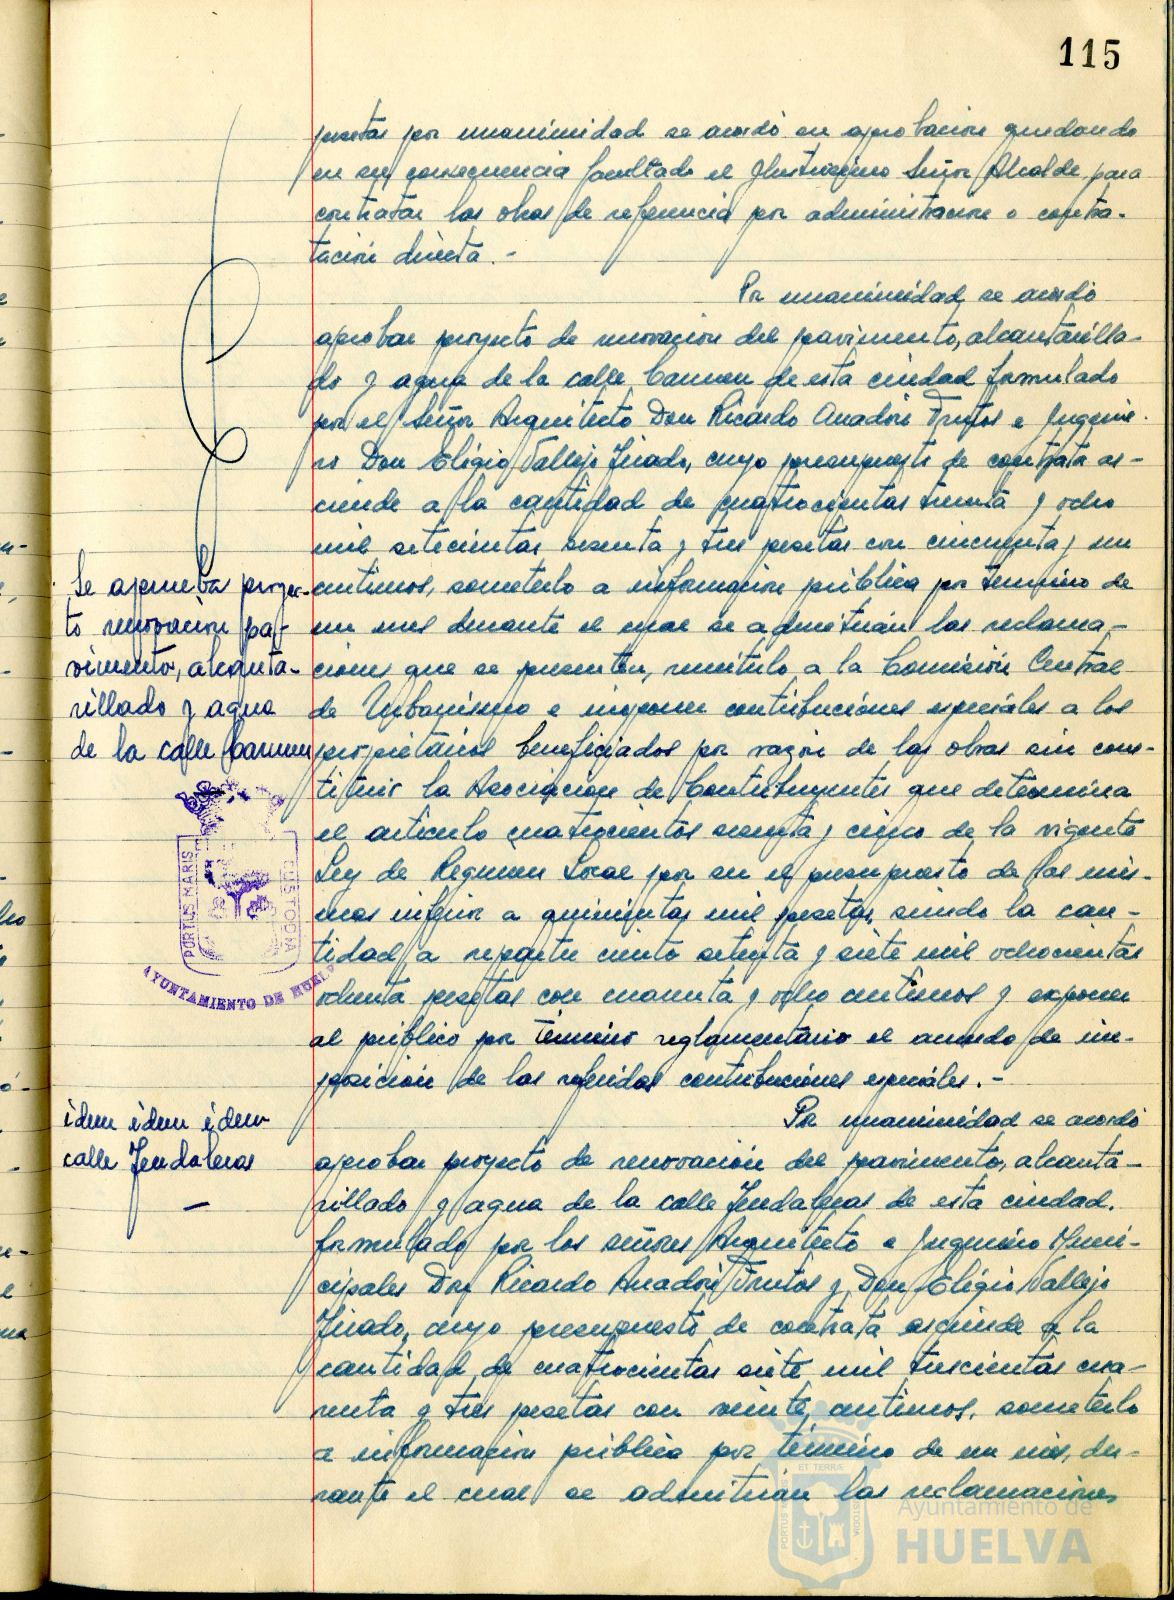 115
pesetas por unanimidad se acordó su aprobación quedando
en su consecuencia facultado el Ilustrisimo Señor Alcalde para
contratar las obras de referencia por administracion o contra-
tación directa.-
Por unanimidad se acordó
aprobar proyecto de renovacion del pavimento, alcantarilla-
do y agua de la calle Carmen de esta ciudad formulado
por el Señor Arquitecto Don Ricardo Anadón Frutos e Ingenie-
ro Don Eligio Vallejo Jurado, cuyo presupuesto de contrata as-
ciende a la cantidad de cuatrocientas treinta y ocho
mil setecientas sesenta y tres pesetas con cincuenta y un
centimos, someterlo a informacion pública por termino de
un mes durante el cual se admitirán las reclama-
ciones que se presenten, remitirlo a la Comisión Central
de Urbanismo e imponer contribuciones especiales a los
propietarios beneficiados por razón de las obras sin cons-
tituir la Asociacion de Contribuyentes que determina
el articulo cuatrocientos sesenta y cinco de la vigente
Ley de Regimen Local por ser el presupuesto de las mis-
mas inferior a quinientas mil pesetas, siendo la can-
tidad a repartir ciento setenta y siete mil ochocientas
ochenta pesetas con cuarenta y ocho centimos y exponer
al público por término reglamentario el acuerdo de im-
posición de las referidas contribuciones especiales.-
Por unanimidad se acordó
aprobar proyecto de renovación del pavimento, alcanta-
rillado y agua de la calle Jendaleras de esta ciudad.
formulado por los señores Arquitecto e Ingeniero Muni-
cipales Don Ricardo Anadón Frutos y Don Eligio Vallejo
Jurado, cuyo presupuesto de contrata asciende a la
cantidad de cuatrocientas siete mil trescientas cua-
renta y tres pesetas con veinte centimos, someterlo
a informacion pública por término de un mes, du-
rante el cual se admitirán las reclamaciones
Se aprueba proyec-
to renovación pa-
vimento, alcanta-
rillado y agua
de la calle Carmen
PORTUS MARIS
CUSTODIA
AYUNTAMIENTO DE HUELVA
idem idem idem
calle Jendaleras
Ayuntamiento de
HUELVA